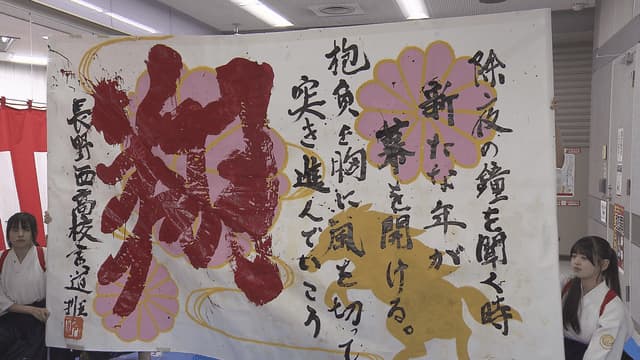 除夜の鐘を聞く時
新たな年が
幕を開ける。
抱負を胸に風を切って
突き進んでいこう
長野西高校書道班